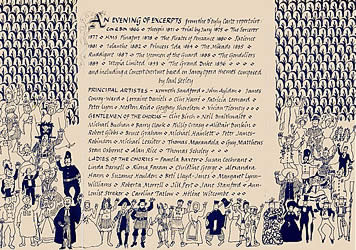 AN EVENING OF EXCERPTS from the D'Oyly Carte repertoire
Cox & Box 1866 Thespis 1871 Trial by Jury 1875 The Sorcerer
1877 HMS Pinafore 1878 The Pirates of Penzance 1880 Patience
1881 Iolanthe 1882 Princess Ida 1884 The Mikado 1885
Ruddigore 1887 The Yeomen of the Guard 1888 The Gondoliers
1889 Utopia Limited 1893 The Grand Duke 1896
and including a Concert Overture based on Savoy Opera themes composed
by Paul Seeley
PRINCIPAL ARTISTES - Kenneth Sandford John Ayldon James
Conroy-Ward Lorraine Daniels Clive Harre Patricia Leonard
Peter Lyon Meston Reid Geoffrey Shovelton Vivian Tierney
GENTLEMEN OF THE CHORUS - Clive Birch Neil Braithwaite
Michael Buchan Barry Clark Billy Strachan Malcolm
Robert Gibbs Bruce Graham Michael Hamlett Peter James-
Robinson Michael Lessiter Thomas Macandola Guy Matthews
Sean Osborne Alan Rice Thomas Scholey
LADIES OF THE CHORUS - Pamela Baxter Susan Cochrane
Linda Darnell Alexandra
Hann Suzanne Houlden Beti Lloyd-Jones Margaret Lynn-
Williams Roberta Morrell Jill Pert Jane Stanford Ann-
Louise Straker Caroline Tatlow Hélène Witcombe